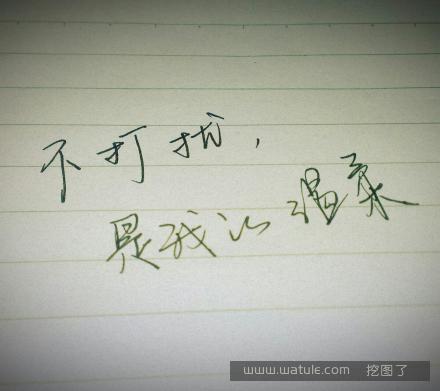 不打扰，
是我的温柔
www.watule.com 挖图了